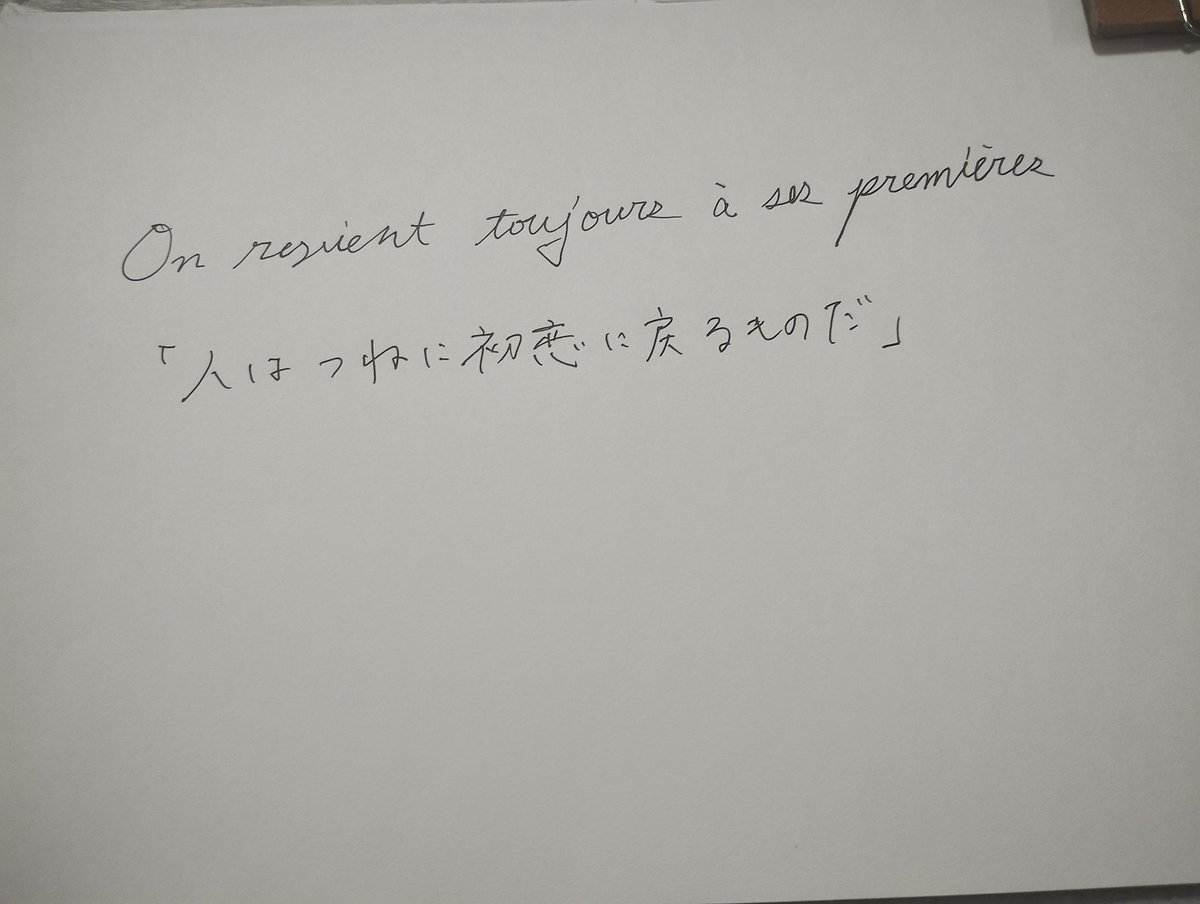 On revient toujours à ses premières
「人はつねに初恋に戻るものだ」